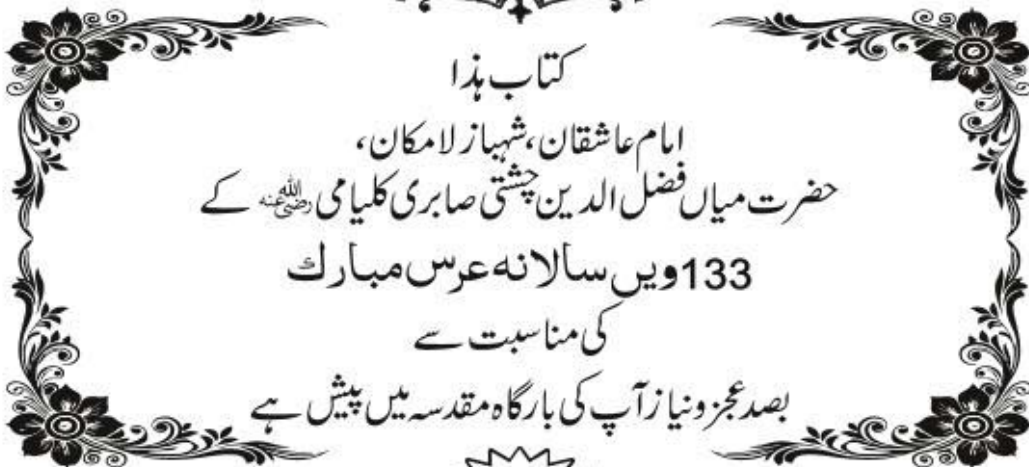 کتاب ہذا
امام عاشقان، شہباز لامکان،
حضرت میاں فضل الدین چشتی صابری کلیامی رضی اللہ عنہ کے
133ویں سالانہ عرس مبارک
کی مناسبت سے
بصد عجز و نیاز آپ کی بارگاہ مقدسہ میں پیش ہے